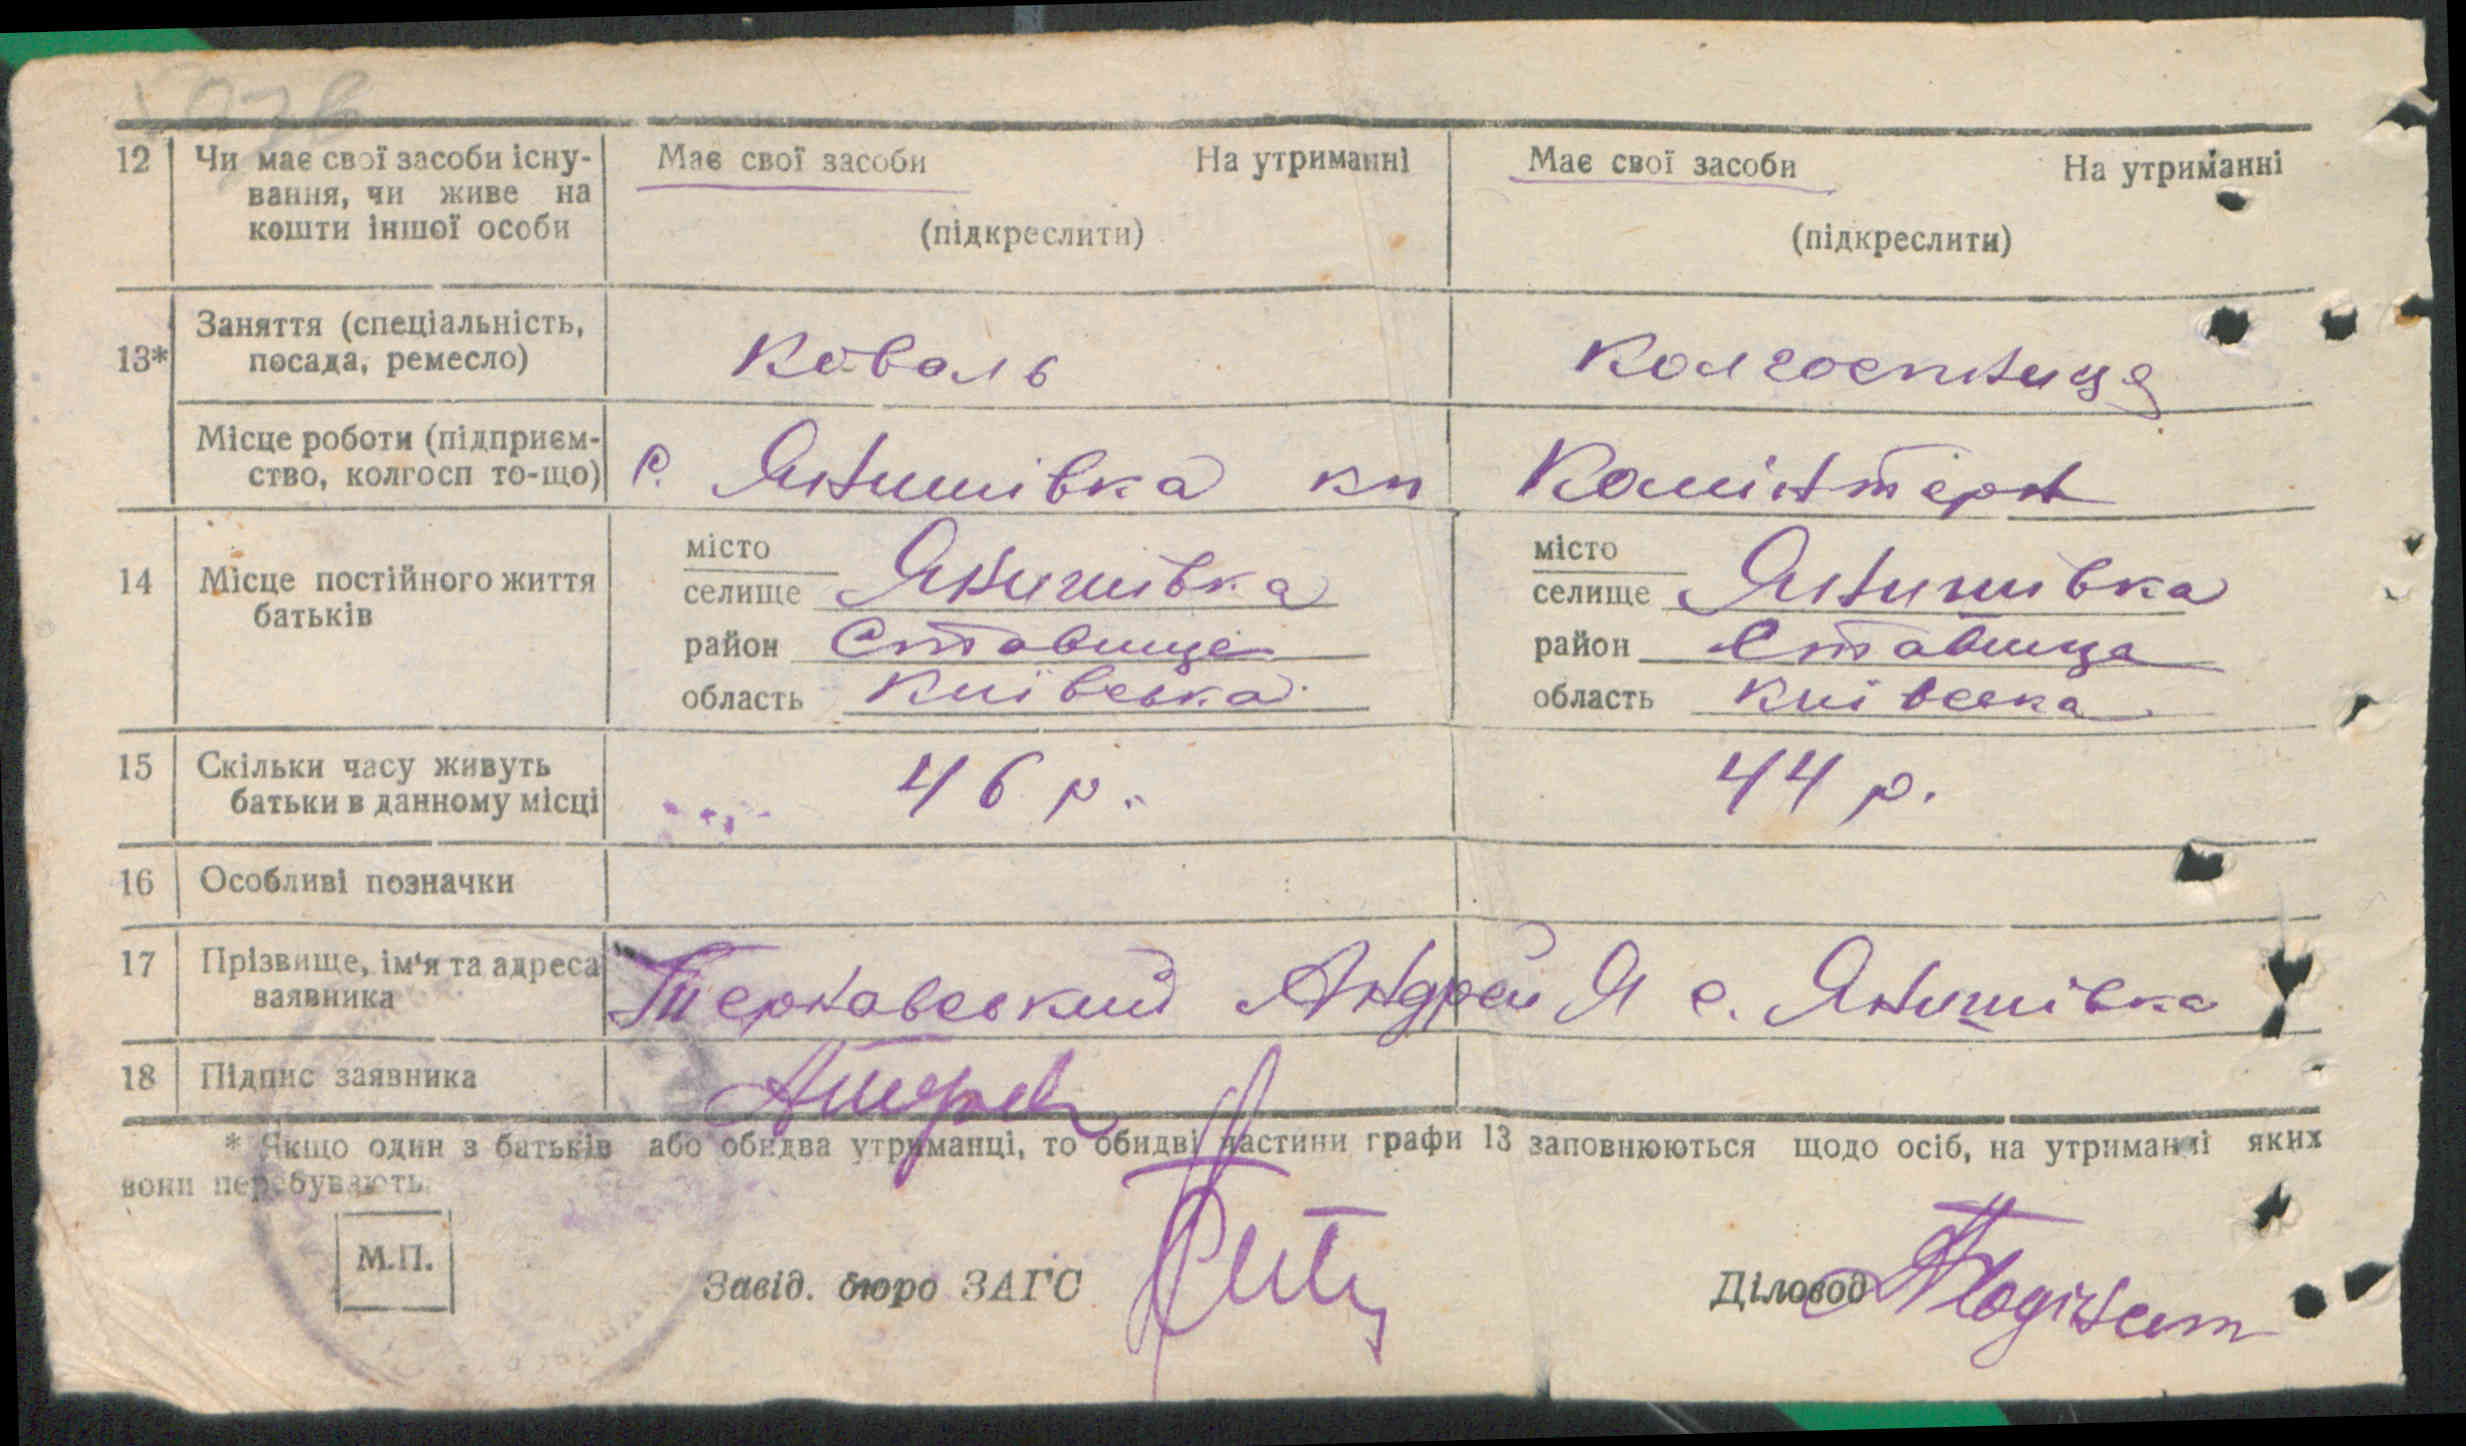 12 Чи має свої засоби існу- Має свої засоби На утриманні Має свої засоби На утриманні
вання, чи живе на
кошти іншої особи (підкреслити) (підкреслити)
13* Заняття (спеціальність,
посада, ремесло) Коваль Колгоспниця
Місце роботи (підприєм-
ство, колгосп то-що) с. Янишівка кп Комінтерн
14 Місце постійного життя
батьків
місто
селище Янишівка
район Ставище
область Київська
місто
селище Янишівка
район Ставища
область Київска
15 Скільки часу живуть
батьки в данному місці 46 р. 44 р.
16 Особливі позначки
17 Прізвище, ім'я та адреса
заявника Терновський Андрей Я с. Янишівка
18 Підпис заявника
* Якщо один з батьків або обидва утриманці, то обидві частини графи 13 заповнюються щодо осіб, на утриманні яких
вони перебувають
М.П.
Завід. бюро ЗАГС
Діловод